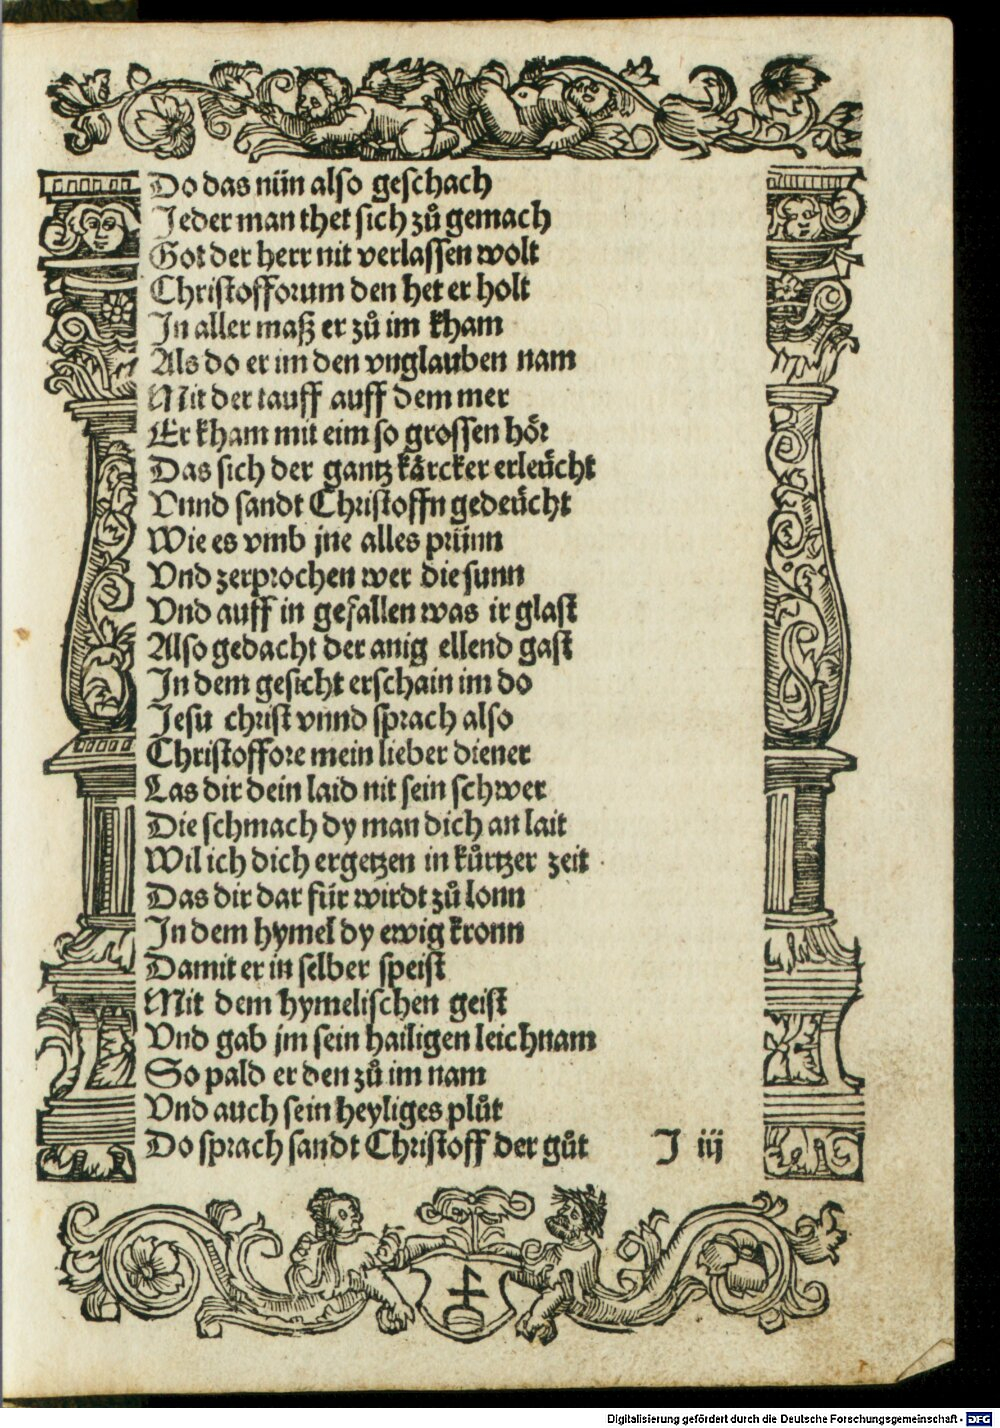 Do das nün also geschach
Jeder man thet sich zů gemach
Got der herr nit verlassen wolt
Christofforum den het er holt
In aller maß er zů im kham
Als do er im den vnglauben nam
Mit der tauff auff dem mer
Er kham mit eim so grossen hör
Das sich der gantz kärcker erleücht
Vnnd sandt Christoffn gedeücht
Wie es vmb jne alles prünn
Vnd zerprochen wer die sunn
Vnd auff in gefallen was ir glast
Also gedacht der anig ellend gast
In dem gesicht erschain im do
Jesu christ vnnd sprach also
Christoffore mein lieber diener
Las dir dein laid nit sein schwer
Die schmach dy man dich an lait
Wil ich dich ergetzen in kürtzer zeit
Das dir dar für wirdt zů lonn
In dem hymel dy ewig kronn
Damit er in selber speist
Mit dem hymelischen geist
Vnd gab jm sein hailigen leichnam
So pald er den zů im nam
Vnd auch sein heyliges plůt
Do sprach sandt Christoff der gůt J iij
Digitalisierung gefördert durch die Deutsche Forschungsgemeinschaft - DFG